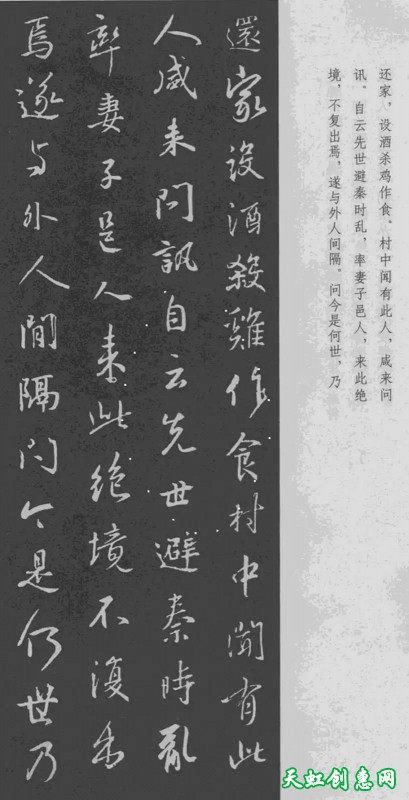 还家，设酒杀鸡作食。村中闻有此人，咸来问
讯。自云先世避秦时乱，率妻子邑人，来此绝
境，不复出焉，遂与外人间隔。问今是何世，乃
還家設酒殺雞作食村中聞有此
人咸来問訊自云先世避秦時亂
率妻子邑人来此絶境不復出
焉遂与外人間隔問今是何世乃
天虹创惠网